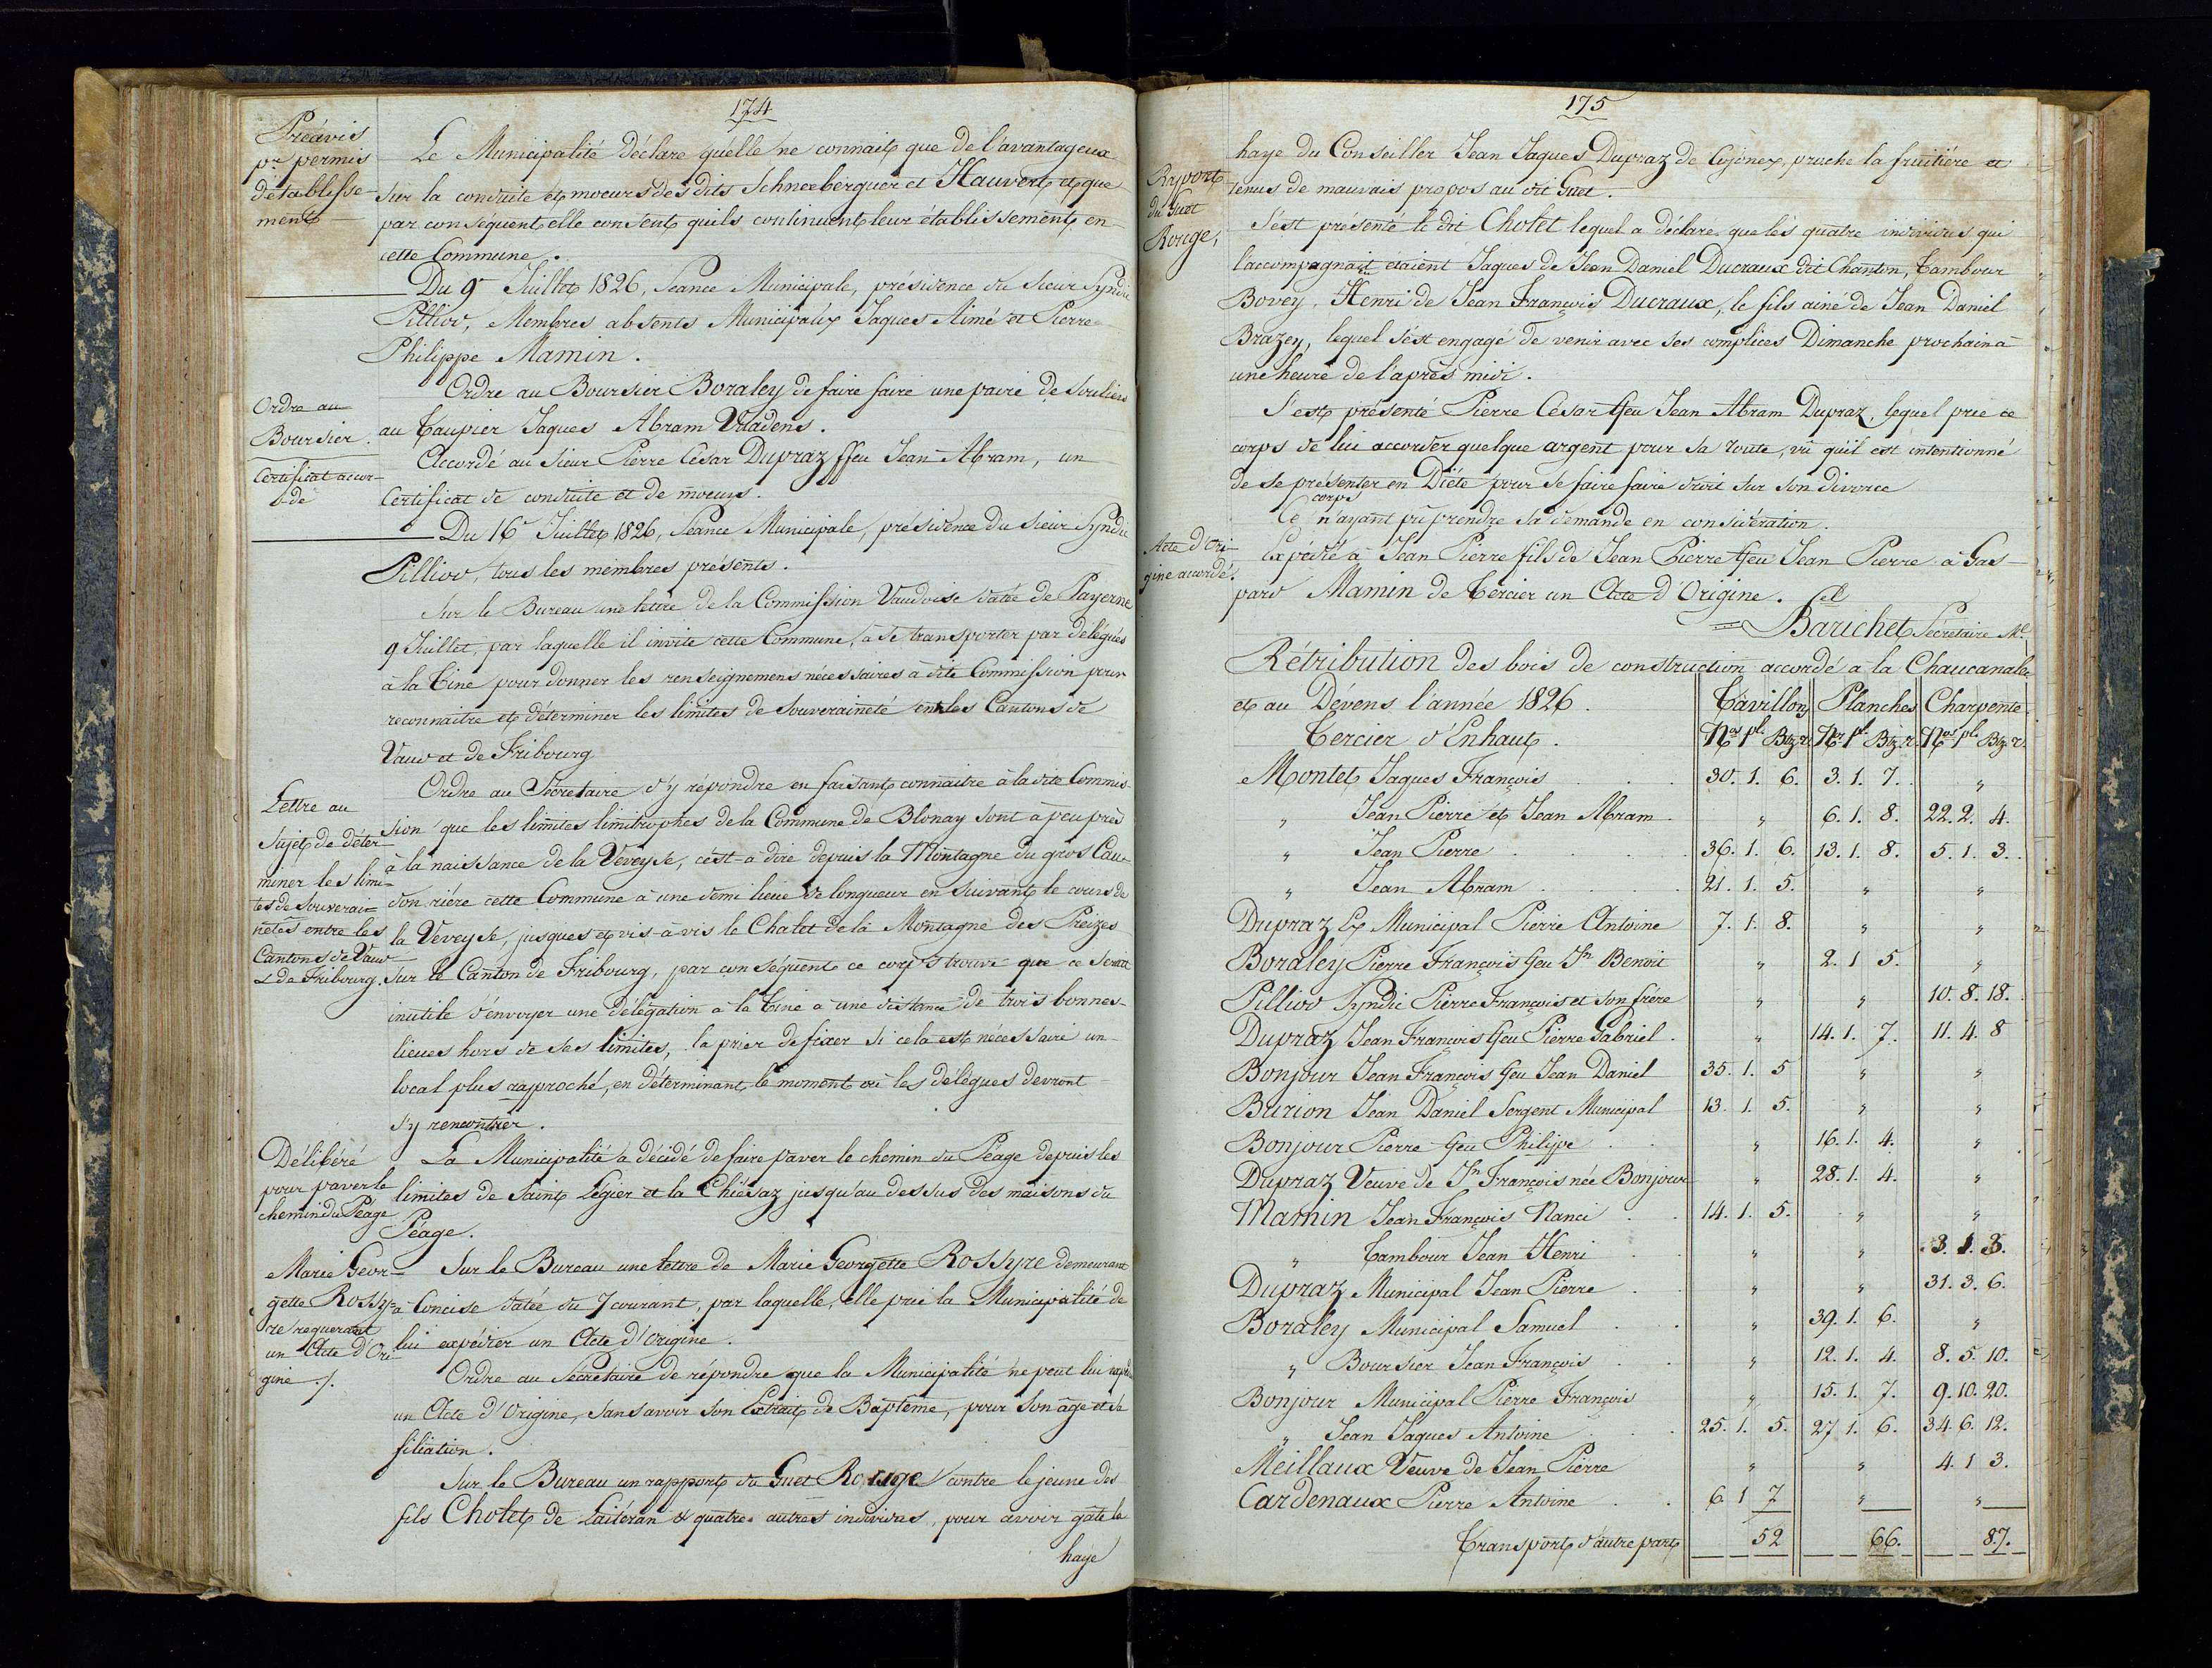 174
Préavis
pr permis
détablisse-
ment
Le Municipalité déclare quelle ne connait que de l'avantageux
sur la conduite et moeurs des dits Schneeberguer et Hauvert et que
par conséquent elle consent quils continuent leur établissement en
cette Commune.
Du 9e Juillet 1826, Séance Municipale, présidence du Sieur Syndic
Pilliod, Membres absents Municipaux Jaques Aimé et Pierre
Philippe Mamin.
Ordre au
Boursier.
Ordre au Boursier Boraley de faire faire une paire de Souliers
au Taupier Jaques Abram Vuadens.
Certificat accor-
dé
Accordé au Sieur Pierre César Dupraz ffeu Jean Abram, un
Certificat de conduite et de moeurs.
Du 16e Juillet 1826, Séance Municipale, présidence du Sieur Syndic
Pilliod, tous les membres présents.
Sur le Bureau une lettre de la Commission Vaudoise datée de Payerne
9 Juillet, par laquelle il invite cette Commune, à se transporter par délégués
à la Tine pour donner les renseignemens nécessaires à dite Commission pour
reconnaitre et déterminer les limites de Souveraineté entre les Cantons de
Vaud et de Fribourg
Lettre au
Sujet de déter-
miner les limi-
tes de Souverai=
netés entre les
Cantons de Vaud
& de Fribourg.
Ordre au Secretaire d'y répondre en faisant connaitre à la dite Commis-
sion que les limites limitrophes de la Commune de Blonay sont à peu près
à la naissance de la Veveyse, c'est-à dire depuis la Montagne du gros Cau-
don riére cette Commune à une demi lieue de longueur en suivant le cours de
la Veveyse, jusques et vis-à-vis le Chalet de la Montagne des Preizes
sur le Canton de Fribourg, par conséquent ce corps trouve que ce serait
inutile d'envoyer une délégation à la Tine à une distance de trois bonnes
lieues hors de ses limites, la prier de fixer si cela est nécessaire un
local plus rapproché, en déterminant le moment où les délégues devront
s'y rencontrer.
Délibéré
pour paver le
chemin du Péage
La Municipalité à décidé de faire paver le chemin du Péage depuis les
limites de Saint Légier et la Chiésaz jusqu'au dessus des maisons du
Péage.
Marie Geor-
gette Rossy-
re requerant
un Acte d'Ori-
gine ./.
Sur le Bureau une lettre de Marie Georgette Rossyre demeurant
à Concise datée du 7 courant, par laquelle, elle prie la Municipalité de
lui expédier un Acte d'Origine.
Ordre au Secretaire de répondre que la Municipalité ne peut lui
un Acte d'Origine, sans avoir son Extrait de Baptême, pour son âge et sa
filiation.
Sur le Bureau un rapport du Guet Rouge contre le jeune des
fils Cholet de Laiteran & quatre autres individus, pour avoir gâté la
haye
175
Raport
du Guet
Rouge,
haye du Conseiller Jean Jaques Dupraz de Cojonex, proche la fruitiére et
tenus de mauvais propos au dit Guet.
S'est présenté le dit Cholet lequel a déclaré que les quatre individus qui
l'accompagnait étaient Jaques de Jean Daniel Ducraux dit Chanton, Tambour
Bovey, Henri de Jean François Ducraux, le fils ainé de Jean Daniel
Brazey, lequel s'est engagé de venir avec ses complices Dimanche prochain à
une heure de l'après midi.
S'est présenté Pierre César ffeu Jean Abram Dupraz, lequel prie ce
corps de lui accorder quelque argent pour sa route, vû qu'il est intentionné
de se présenter en Diéte pour se faire faire droit sur son divorce
Ce corps n'ayant pû prendre sa demande en considération.
Acte d'Ori-
gine accordé.
Expédié à Jean Pierre fils de Jean Pierre ffeu Jean Pierre à Gas-
pard Mamin de Tercier un Acte d'Origine.
Barichet Secrétaire Ml
Rétribution des bois de construction accordé à la Chaucanalla
et au Dévens l'année 1826. Tavillons Planches Charpente
Tercier d'Enhaut. Nos pl. Btz. r. Nos pl. Btz. r. Nos pl. Btz. r.
Montet Jaques François 30. 1. 6. 3. 1. 7. "
" Jean Pierre et Jean Abram " 6. 1. 8. 22. 2. 4.
" Jean Pierre 36. 1. 6. 13. 1. 8. 5. 1. 3.
" Jean Abram 21. 1. 5. " "
Dupraz Ex Municipal Pierre Antoine 7. 1. 8. " "
Boraley Pierre François ffeu Jn Benoit " 2. 1 5. "
Pilliod Syndic Pierre François et son frére " " 10. 8. 18.
Dupraz Jean François ffeu Pierre Gabriel " 14. 1. 7. 11. 4. 8
Bonjour Jean François ffeu Jean Daniel 35. 1. 5 " "
Burion Jean Daniel Sergent Municipal 13. 1. 5. " "
Bonjour Pierre ffeu Philippe " 16. 1. 4. "
Dupraz Veuve de Jn François née Bonjour " 28. 1. 4. "
Mamin Jean François Nanci 14. 1. 5. " "
" Tambour Jean Henri " " 3. 1. 3.
Dupraz Municipal Jean Pierre " " 31. 3. 6.
Boraley Municipal Samuel " 39. 1. 6. "
" Boursier Jean François " 12. 1. 4. 8. 5. 10.
Bonjour Municipal Pierre François " 15. 1. 7. 9. 10. 20.
" Jean Jaques Antoine 25. 1. 5. 27 1. 6. 34. 6. 12.
Meillaux Veuve de Jean Pierre " " 4. 1 3.
Cardenaux Pierre Antoine 6. 1 7 " "
Transport d'autre part 52 66. 87.